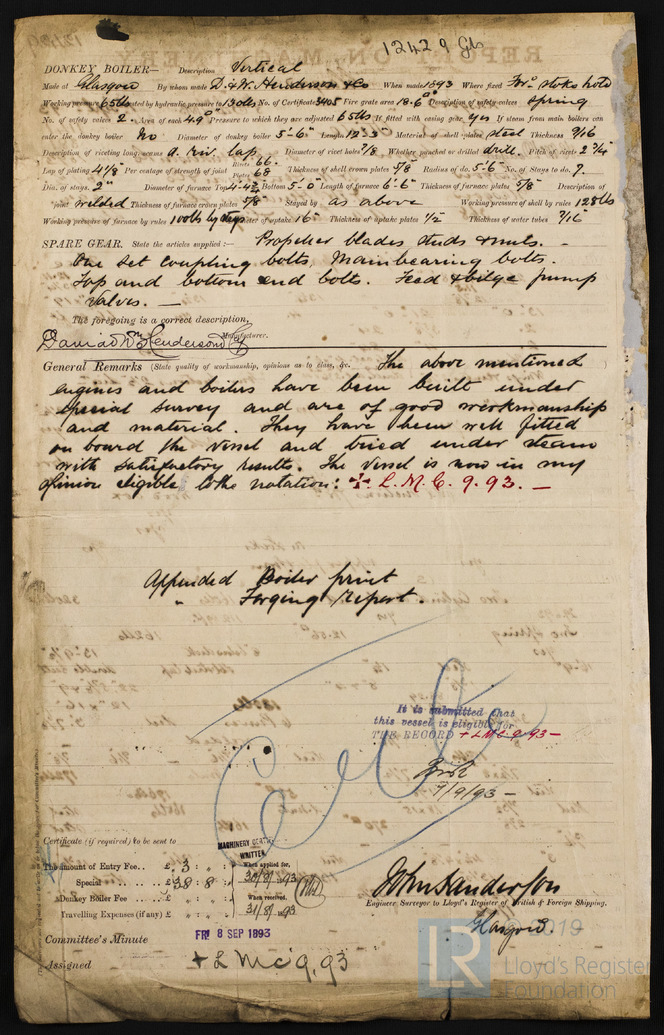 12429 Gls
DONKEY BOILER— Description Vertical
Made at Glasgow By whom made D. & W. Henderson & Co When made 1893 Where fixed For'd stokehold
Working pressure 65 lbs tested by hydraulic pressure to 130 lbs No. of Certificate 3405 Fire grate area 18·6 □' Description of safety valves Spring
No. of safety valves 2 Area of each 4.90" Pressure to which they are adjusted 65 lbs If fitted with easing gear yes If steam from main boilers can
enter the donkey boiler No Diameter of donkey boiler 5'-6" Length 12'-3" Material of shell plates steel Thickness 9/16
Description of riveting long. seams d. riv. lap Diameter of rivet holes 7/8 Whether punched or drilled drill. Pitch of rivets 2 3/4"
Lap of plating 4 1/8 Per centage of strength of joint Rivets 66. Plates 68 Thickness of shell crown plates 5/8 Radius of do. 5'-6" No. of Stays to do. 7.
Dia. of stays. 2" Diameter of furnace Top 4-4 3/4 Bottom 5'-0" Length of furnace 6'-6" Thickness of furnace plates 5/8 Description of
joint welded Thickness of furnace crown plates 5/8" Stayed by as above Working pressure of shell by rules 128 lbs
Working pressure of furnace by rules 100 lbs by stays Diameter of uptake 16" Thickness of uptake plates 1/2 Thickness of water tubes 7/16"
SPARE GEAR. State the articles supplied:— Propeller blades studs & nuts. —
One set coupling bolts, Main bearing bolts.
Top and bottom end bolts. Feed & bilge pump
Valves. —
The foregoing is a correct description,
David & Wm Henderson & Co Manufacturer.
General Remarks (State quality of workmanship, opinions as to class, &c. The above mentioned
engines and boilers have been built under
special survey and are of good workmanship
and material. They have been well fitted
on board the vessel and tried under steam
with satisfactory results. The vessel is now in my
opinion eligible to the notation: + L.M.C. 9.93. —
Appended Boiler print
" Forging Report.
It is submitted that
this vessel is eligible for
THE RECORD + LMC 9 93 —
7/9/93 —
Certificate (if required) to be sent to
MACHINERY CERTIFICATE
WRITTEN
The amount of Entry Fee.. £ 3 : " : " When applied for,
Special .. .. .. £ 38 : 8 : " 30/8/93
Donkey Boiler Fee .. .. £ " : " : " When received,
Travelling Expenses (if any) £ " : " : " 31/8/93
John Sanderson
Engineer Surveyor to Lloyd's Register of British & Foreign Shipping.
Glasgow.
Committee's Minute FRI 8 SEP 1893
Assigned + L M C 9,93
LR
2019
Lloyd's Register
Foundation